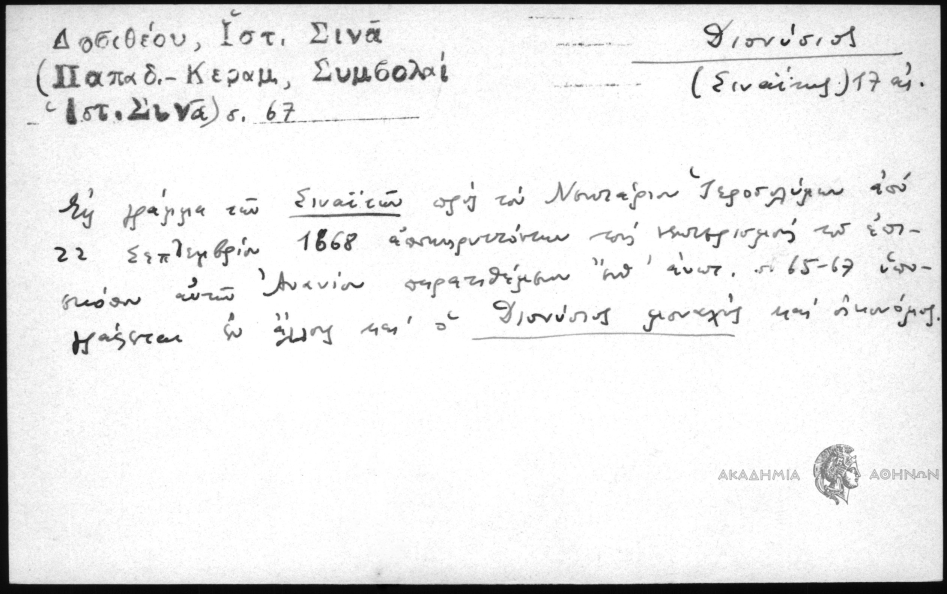 Δοσιθέου, Ἱστ. Σινᾶ
(Παπαδ.-Κεραμ, Συμβολαί
Ἱστ. Σινᾶ) σ. 67
Διονύσιος
(Σιναΐτης) 17 αἰ.
Εἰς γράμμα τῶν Σιναϊτῶν πρὸς τὸν Νεκτάριον Ἱεροσολύμων ἀπὸ
22 Σεπτεμβρίου 1668 ἀποκηρυττόντων τοὺς νεωτερισμοὺς τοῦ ἐπι-
σκόπου αὐτῶν Ἀνανίου παρατιθέμενον ἔνθ' ἀνωτ. σ. 65-67 ὑπο-
γράφεται ἐν ἄλλοις καὶ ὁ Διονύσιος μοναχὸς καὶ οἰκονόμος.
ΑΚΑΔΗΜΙΑ ΑΘΗΝΩΝ